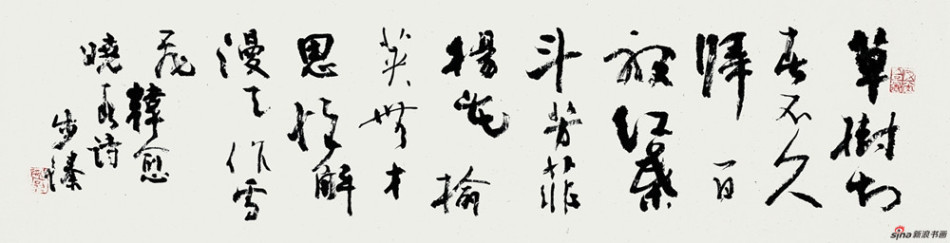 草樹知
春不久
歸百
般紅紫
斗芳菲
楊花榆
莢無才
思惟解
漫天作雪
飛韓愈
曉春詩
步
sina新浪书画